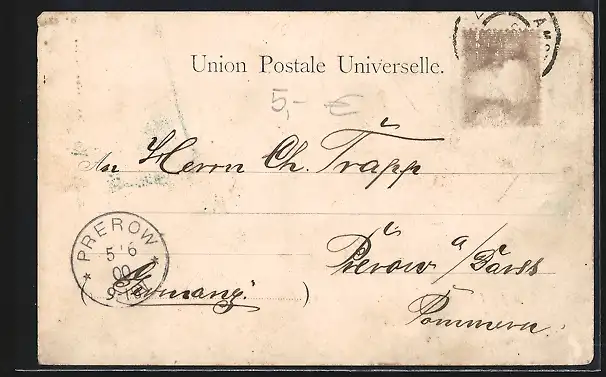 AMO
Union Postale Universelle.
5,- €
An Herrn Ch. Trapp
PREROW
5 6
00
9-10V
Prerow a/Darß
(Germany.)
Pommern.